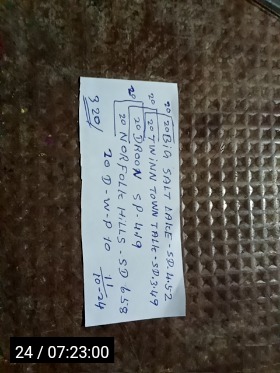 20 20 BIG SALT LAKE - SP. 4.52
20 20 TWINN TOWN TALK - SP. 3.49
20 20 DROON SP. 4.19
20 NORFOLK HILLS - SP 6.58
320/ 20 D - W - P 10
11
10-24
24 / 07:23:00